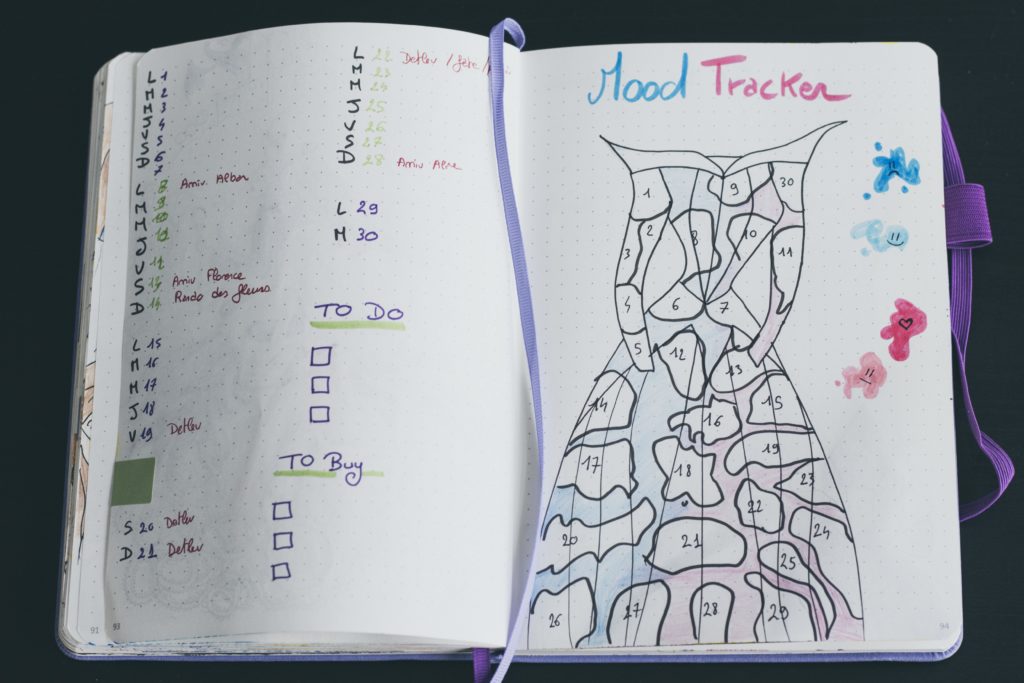 L 1
M 2
M 3
J 4
V 5
S 6
D 7
L 8 Arriv.
M 9
M 10
J 11
V 12
S 13 Arriv Florence
D 14 des fleurs
L 15
M 16
M 17
J 18
V 19 Detlev
S 20 Detlev
D 21 Detlev
91 93
L 22 Detlev / fête /
M 23
M 24
J 25
V 26
S 27
D 28 Arriv
L 29
M 30
TO DO
TO Buy
Mood Tracker
1 9 30
2 8 10
3 11
4 6 7
5 12 13
14 16 15
17 18 19
23
22
20 21 24
25
26 27 28 29
94